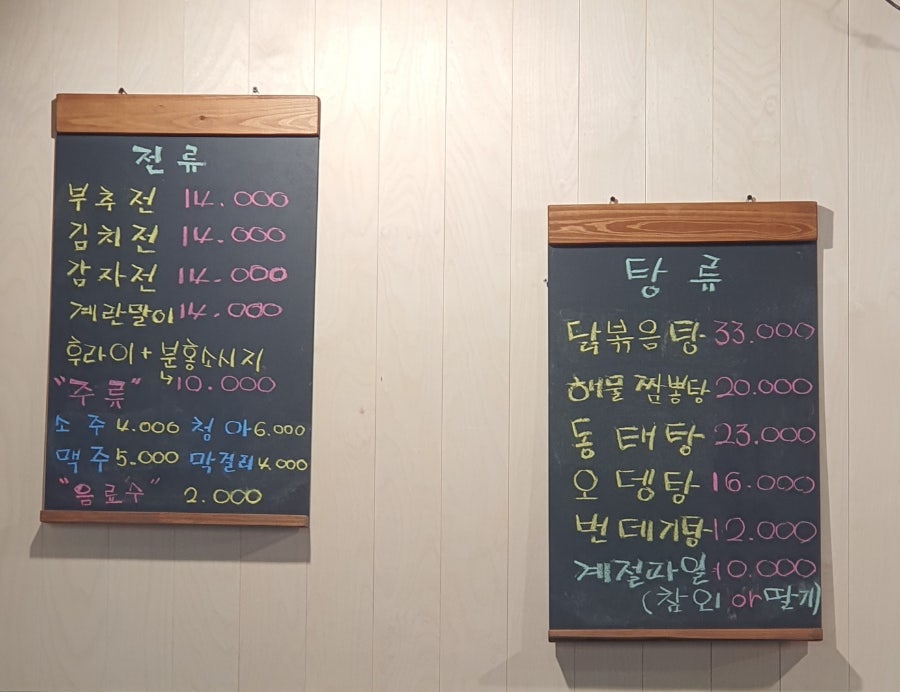 전류
부추전 14.000
김치전 14.000
감자전 14.000
계란말이 14.000
후라이+분홍소시지
↳10.000
"주류"
소주 4.000 청하 6.000
맥주 5.000 막걸리 4.000
"음료수" 2.000
탕류
닭볶음탕 33.000
해물짬뽕탕 20.000
동태탕 23.000
오뎅탕 16.000
번데기탕 12.000
계절과일 10.000
(참외 or 딸기)